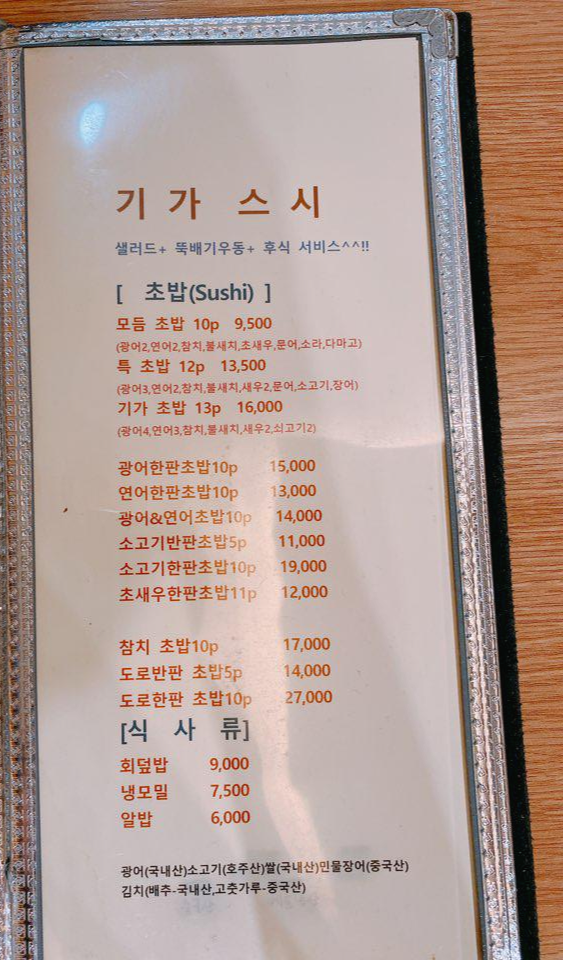 기 가 스 시
샐러드+ 뚝배기우동+ 후식 서비스^^!!
[ 초밥(Sushi) ]
모듬 초밥 10p 9,500
(광어2,연어2,참치,불새치,초새우,문어,소라,다마고)
특 초밥 12p 13,500
(광어3,연어2,참치,불새치,새우2,문어,소고기,장어)
기가 초밥 13p 16,000
(광어4,연어3,참치,불새치,새우2,쇠고기2)
광어한판초밥10p 15,000
연어한판초밥10p 13,000
광어&연어초밥10p 14,000
소고기반판초밥5p 11,000
소고기한판초밥10p 19,000
초새우한판초밥11p 12,000
참치 초밥10p 17,000
도로반판 초밥5p 14,000
도로한판 초밥10p 27,000
[식 사 류]
회덮밥 9,000
냉모밀 7,500
알밥 6,000
광어(국내산)소고기(호주산)쌀(국내산)민물장어(중국산)
김치(배추-국내산,고춧가루-중국산)